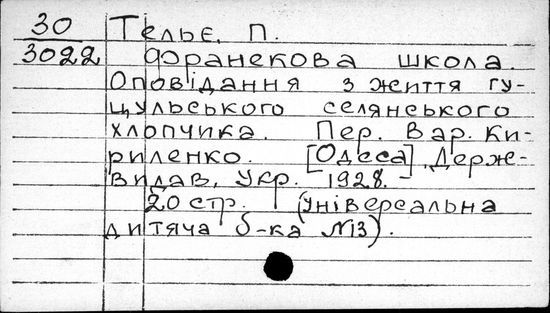 30 Тельє, П.
3022 Франекова школа.
Оповідання з життя гу-
цульського селянського
хлопчика. Пер. Вар. Ки-
риленко. [Одеса], Держ-
видав, Укр. 1928. -
20 стр. (Універсальна
дитяча б-ка №13).